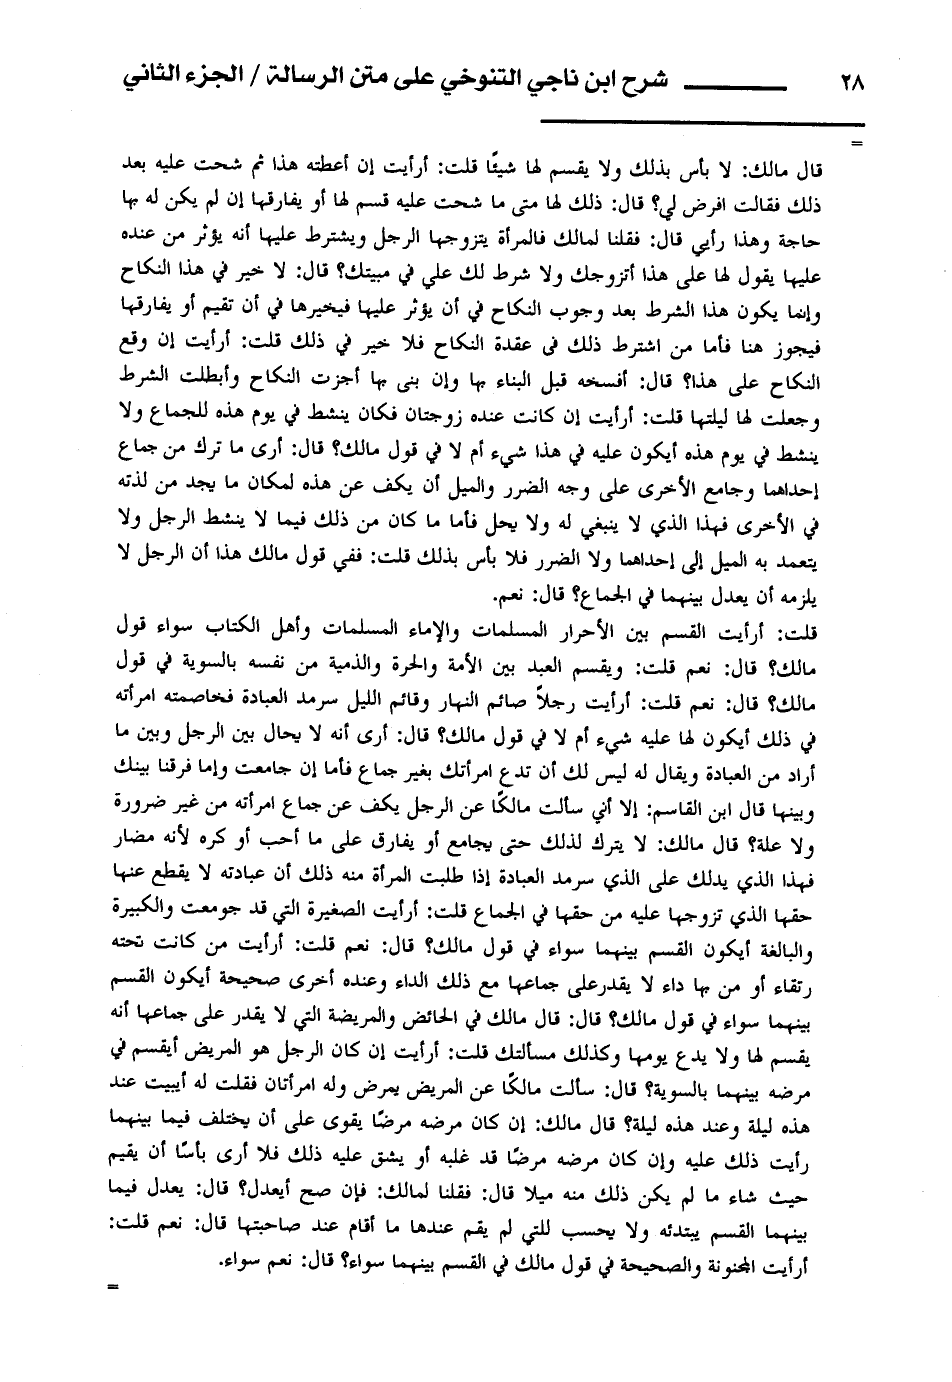 ٢٨ ــــــــــ شرح ابن ناجي التنوخي على متن الرسالة / الجزء الثاني
=
قال مالك: لا بأس بذلك ولا يقسم لها شيئًا قلت: أرأيت إن أعطته هذا ثم شحت عليه بعد
ذلك فقالت افرض لي؟ قال: ذلك لها متى ما شحت عليه قسم لها أو يفارقها إن لم يكن له بها
حاجة وهذا رأيي قال: فقلنا لمالك فالمرأة يتزوجها الرجل ويشترط عليها أنه يؤثر من عنده
عليها يقول لها على هذا أتزوجك ولا شرط لك علي في مبيتك؟ قال: لا خير في هذا النكاح
وإنما يكون هذا الشرط بعد وجوب النكاح في أن يؤثر عليها فيخيرها في أن تقيم أو يفارقها
فيجوز هنا فأما من اشترط ذلك فى عقدة النكاح فلا خير في ذلك قلت: أرأيت إن وقع
النكاح على هذا؟ قال: أفسخه قبل البناء بها وإن بنى بها أجزت النكاح وأبطلت الشرط
وجعلت لها ليلتها قلت: أرأيت إن كانت عنده زوجتان فكان ينشط في يوم هذه للجماع ولا
ينشط في يوم هذه أيكون عليه في هذا شيء أم لا في قول مالك؟ قال: أرى ما ترك من جماع
إحداهما وجامع الأخرى على وجه الضرر والميل أن يكف عن هذه لمكان ما يجد من لذته
في الأخرى فهذا الذي لا ينبغي له ولا يحل فأما ما كان من ذلك فيما لا ينشط الرجل ولا
يتعمد به الميل إلى إحداهما ولا الضرر فلا بأس بذلك قلت: ففي قول مالك هذا أن الرجل لا
يلزمه أن يعدل بينهما في الجماع؟ قال: نعم.
قلت: أرأيت القسم بين الأحرار المسلمات والإماء المسلمات وأهل الكتاب سواء قول
مالك؟ قال: نعم قلت: ويقسم العبد بين الأمة والحرة والذمية من نفسه بالسوية في قول
مالك؟ قال: نعم قلت: أرأيت رجلاً صائم النهار وقائم الليل سرمد العبادة فخاصمته امرأته
في ذلك أيكون لها عليه شيء أم لا في قول مالك؟ قال: أرى أنه لا يحال بين الرجل وبين ما
أراد من العبادة ويقال له ليس لك أن تدع امرأتك بغير جماع فأما إن جامعت وإما فرقنا بينك
وبينها قال ابن القاسم: إلا أني سألت مالكًا عن الرجل يكف عن جماع امرأته من غير ضرورة
ولا علة؟ قال مالك: لا يترك لذلك حتى يجامع أو يفارق على ما أحب أو كره لأنه مضار
فهذا الذي يدلك على الذي سرمد العبادة إذا طلبت المرأة منه ذلك أن عبادته لا يقطع عنها
حقها الذي تزوجها عليه من حقها في الجماع قلت: أرأيت الصغيرة التي قد جومعت والكبيرة
والبالغة أيكون القسم بينهما سواء في قول مالك؟ قال: نعم قلت: أرأيت من كانت تحته
رتقاء أو من بها داء لا يقدرعلى جماعها مع ذلك الداء وعنده أخرى صحيحة أيكون القسم
بينهما سواء في قول مالك؟ قال: قال مالك في الحائض والمريضة التي لا يقدر على جماعها أنه
يقسم لها ولا يدع يومها وكذلك مسألتك قلت: أرأيت إن كان الرجل هو المريض أيقسم في
مرضه بينهما بالسوية؟ قال: سألت مالكًا عن المريض يمرض وله امرأتان فقلت له أيبيت عند
هذه ليلة وعند هذه ليلة؟ قال مالك: إن كان مرضه مرضًا يقوى على أن يختلف فيما بينهما
رأيت ذلك عليه وإن كان مرضه مرضًا قد غلبه أو يشق عليه ذلك فلا أرى بأسًا أن يقيم
حيث شاء ما لم يكن ذلك منه ميلا قال: فقلنا لمالك: فإن صح أيعدل؟ قال: يعدل فيما
بينهما القسم يبتدئه ولا يحسب للتي لم يقم عندها ما أقام عند صاحبتها قال: نعم قلت:
أرأيت المجنونة والصحيحة في قول مالك في القسم بينهما سواء؟ قال: نعم سواء.
=